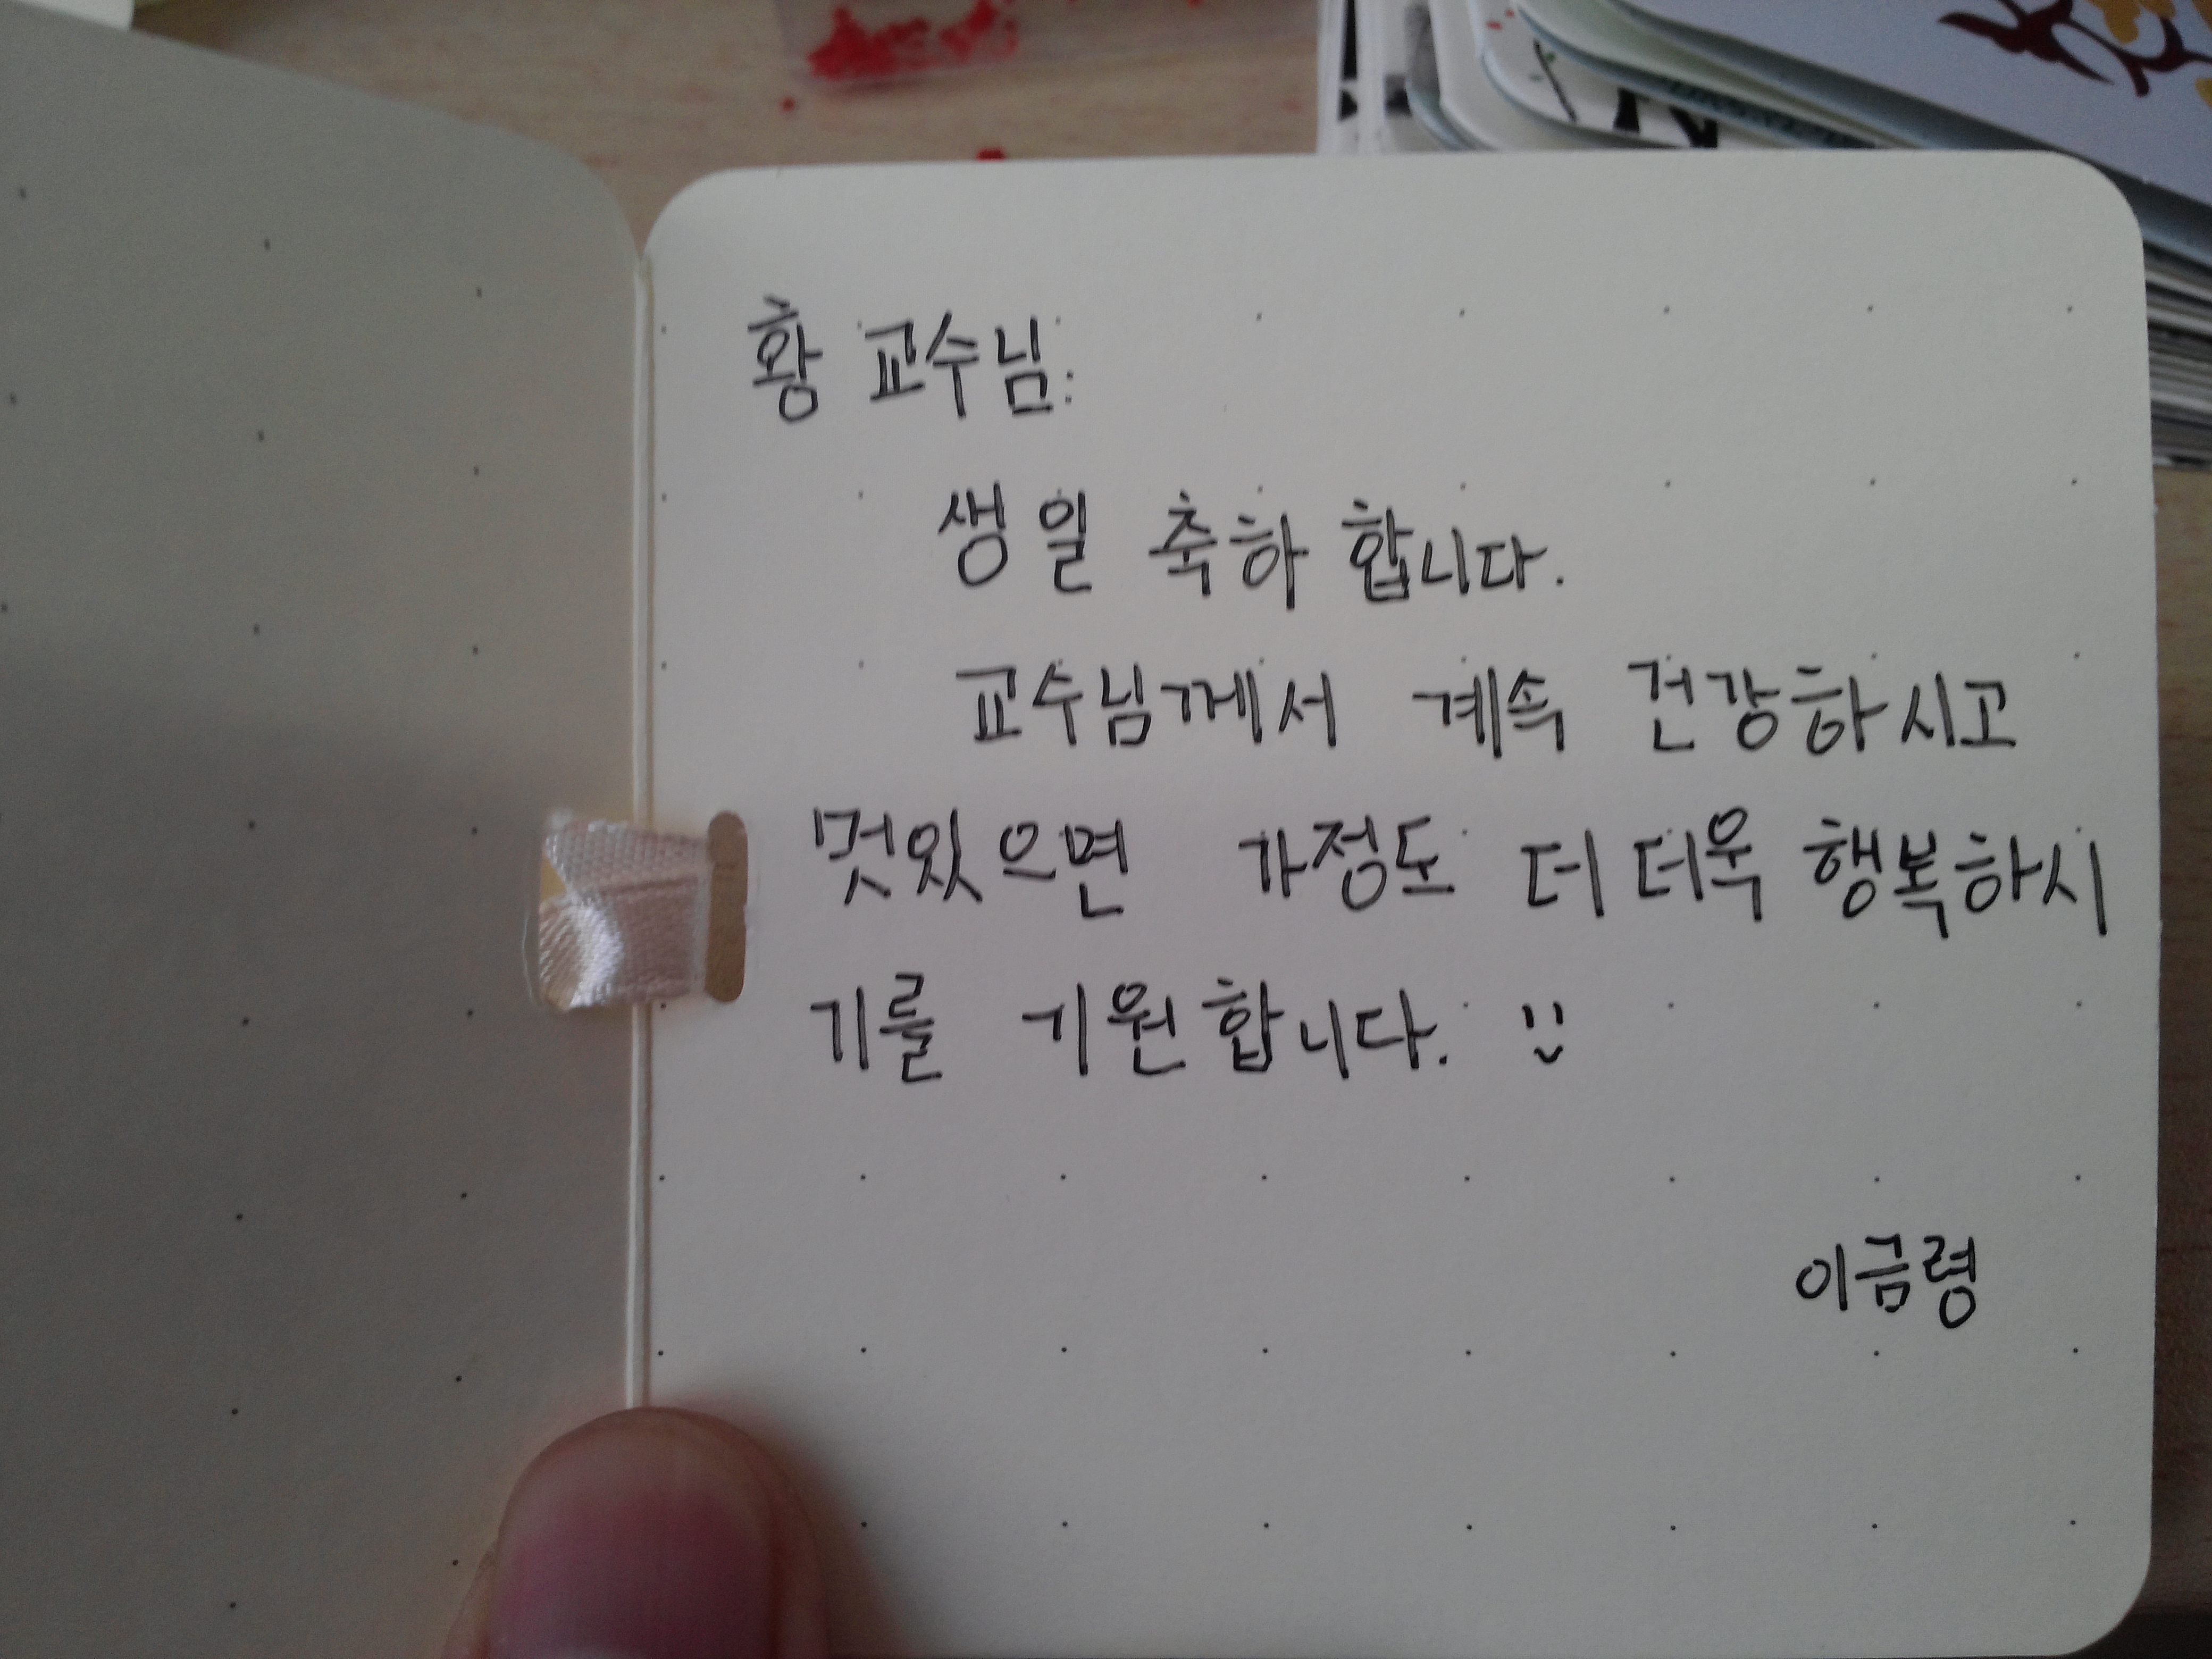 황 교수님:
생일 축하 합니다.
교수님께서 계속 건강하시고
멋있으면 가정도 더 더욱 행복하시
기를 기원합니다. :)
이금령